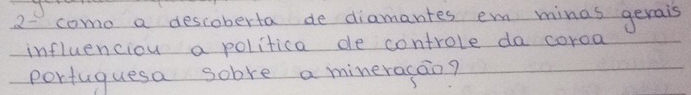 2- como a descoberta de diamantes em minas gerais
influenciou a política de controle da coroa
portuguesa sobre a mineração?